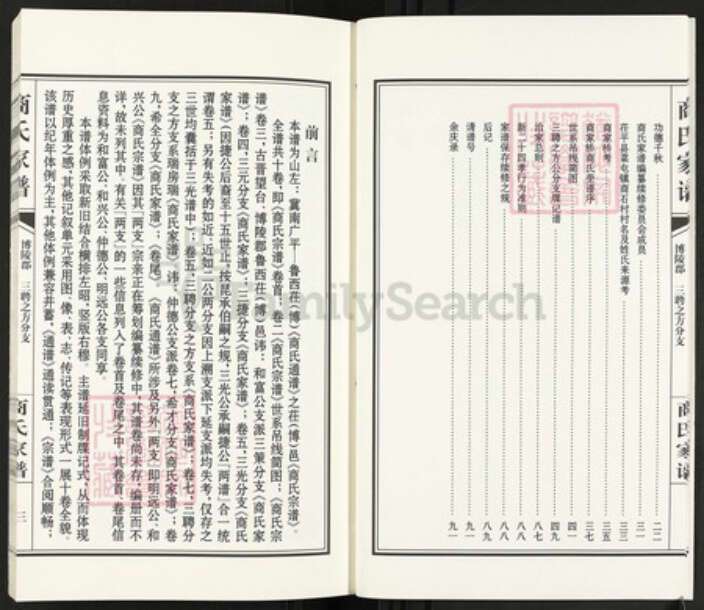 商氏家谱
博陵郡 三聘之方分支
商氏家谱
功德千秋……二二
商氏家谱编纂续修委员会成员……三一
茌平县菜屯镇商石村村名及姓氏来源考……三三
商家桥考……三五
商家桥商氏垄谱序……三七
世系吊线简图……四一
三聘之方公分支牒记谱……四九
治家总则……八七
新二十四孝行为准则……八八
家谱保存续修之规……八八
后记……八九
请谱号……九一
余庆录……九一
前言
本谱为山左；冀南广平—鲁西茌(博)《商氏通谱》之茌(博)邑《商氏宗谱》。
全谱共十卷，即：《商氏宗谱》卷首；卷二《商氏宗谱》世系吊线简图；《商氏宗
谱》卷三，古晋望台，博陵郡鲁西茌(博)邑讳：和富公支派三策分支《商氏家
谱》；卷四，三元分支《商氏家谱》；三捷分支《商氏家谱》；卷五，三光分支《商氏
家谱》因捷公后裔至十五世止，按昆承伯嗣之规，三光公承嗣捷公「两谱」合一统
谓卷五；另有失考的如迁、近如二公两分支因上溯支派下延支派均失考，仅存之
三世均囊括于三光谱中）；卷五，三聘分支之方支系《商氏家谱》；卷七，三聘分
支之方支系瑞房瑞《商氏家谱》讳：仲德公支派卷七，希才分支《商氏家谱》；卷
九，希全分支《商氏家谱》；《卷尾》，《商氏通谱》所涉及另外「两支」即明远公、和
兴公《商氏宗谱》因其「两支」宗亲正在筹划编纂续修中，其谱卷尚未存，编册而不
详，故未列其中。有关「两支」的一些信息列入了卷首及卷尾之中，其卷首、卷尾信
息资料为和富公、和兴公、仲德公、明远公各支同享。
本谱体例采取新旧结合横排左昭，竖版右穆。主谱延旧制牒记式，从而体现
历史厚重之感，其他记叙单元采用图、像、表、志，传记等表现形式一展十卷全貌。
该谱以纪年体例为主，其他体例兼容并蓄，《通谱》通读贯通；《宗谱》合阅顺畅；
商氏家谱
博陵郡 三聘之方分支
商氏家谱
三
FamilySearch